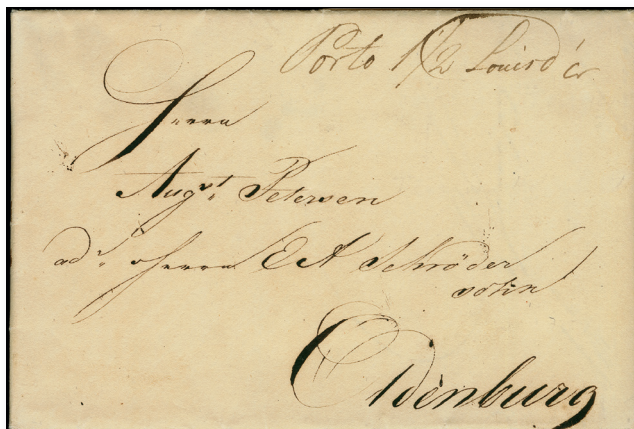 Porto 1 1/2 Louisd'or
Herrn
Augst Petersen
adr. Herrn E A Schröder
sohn
Oldenburg